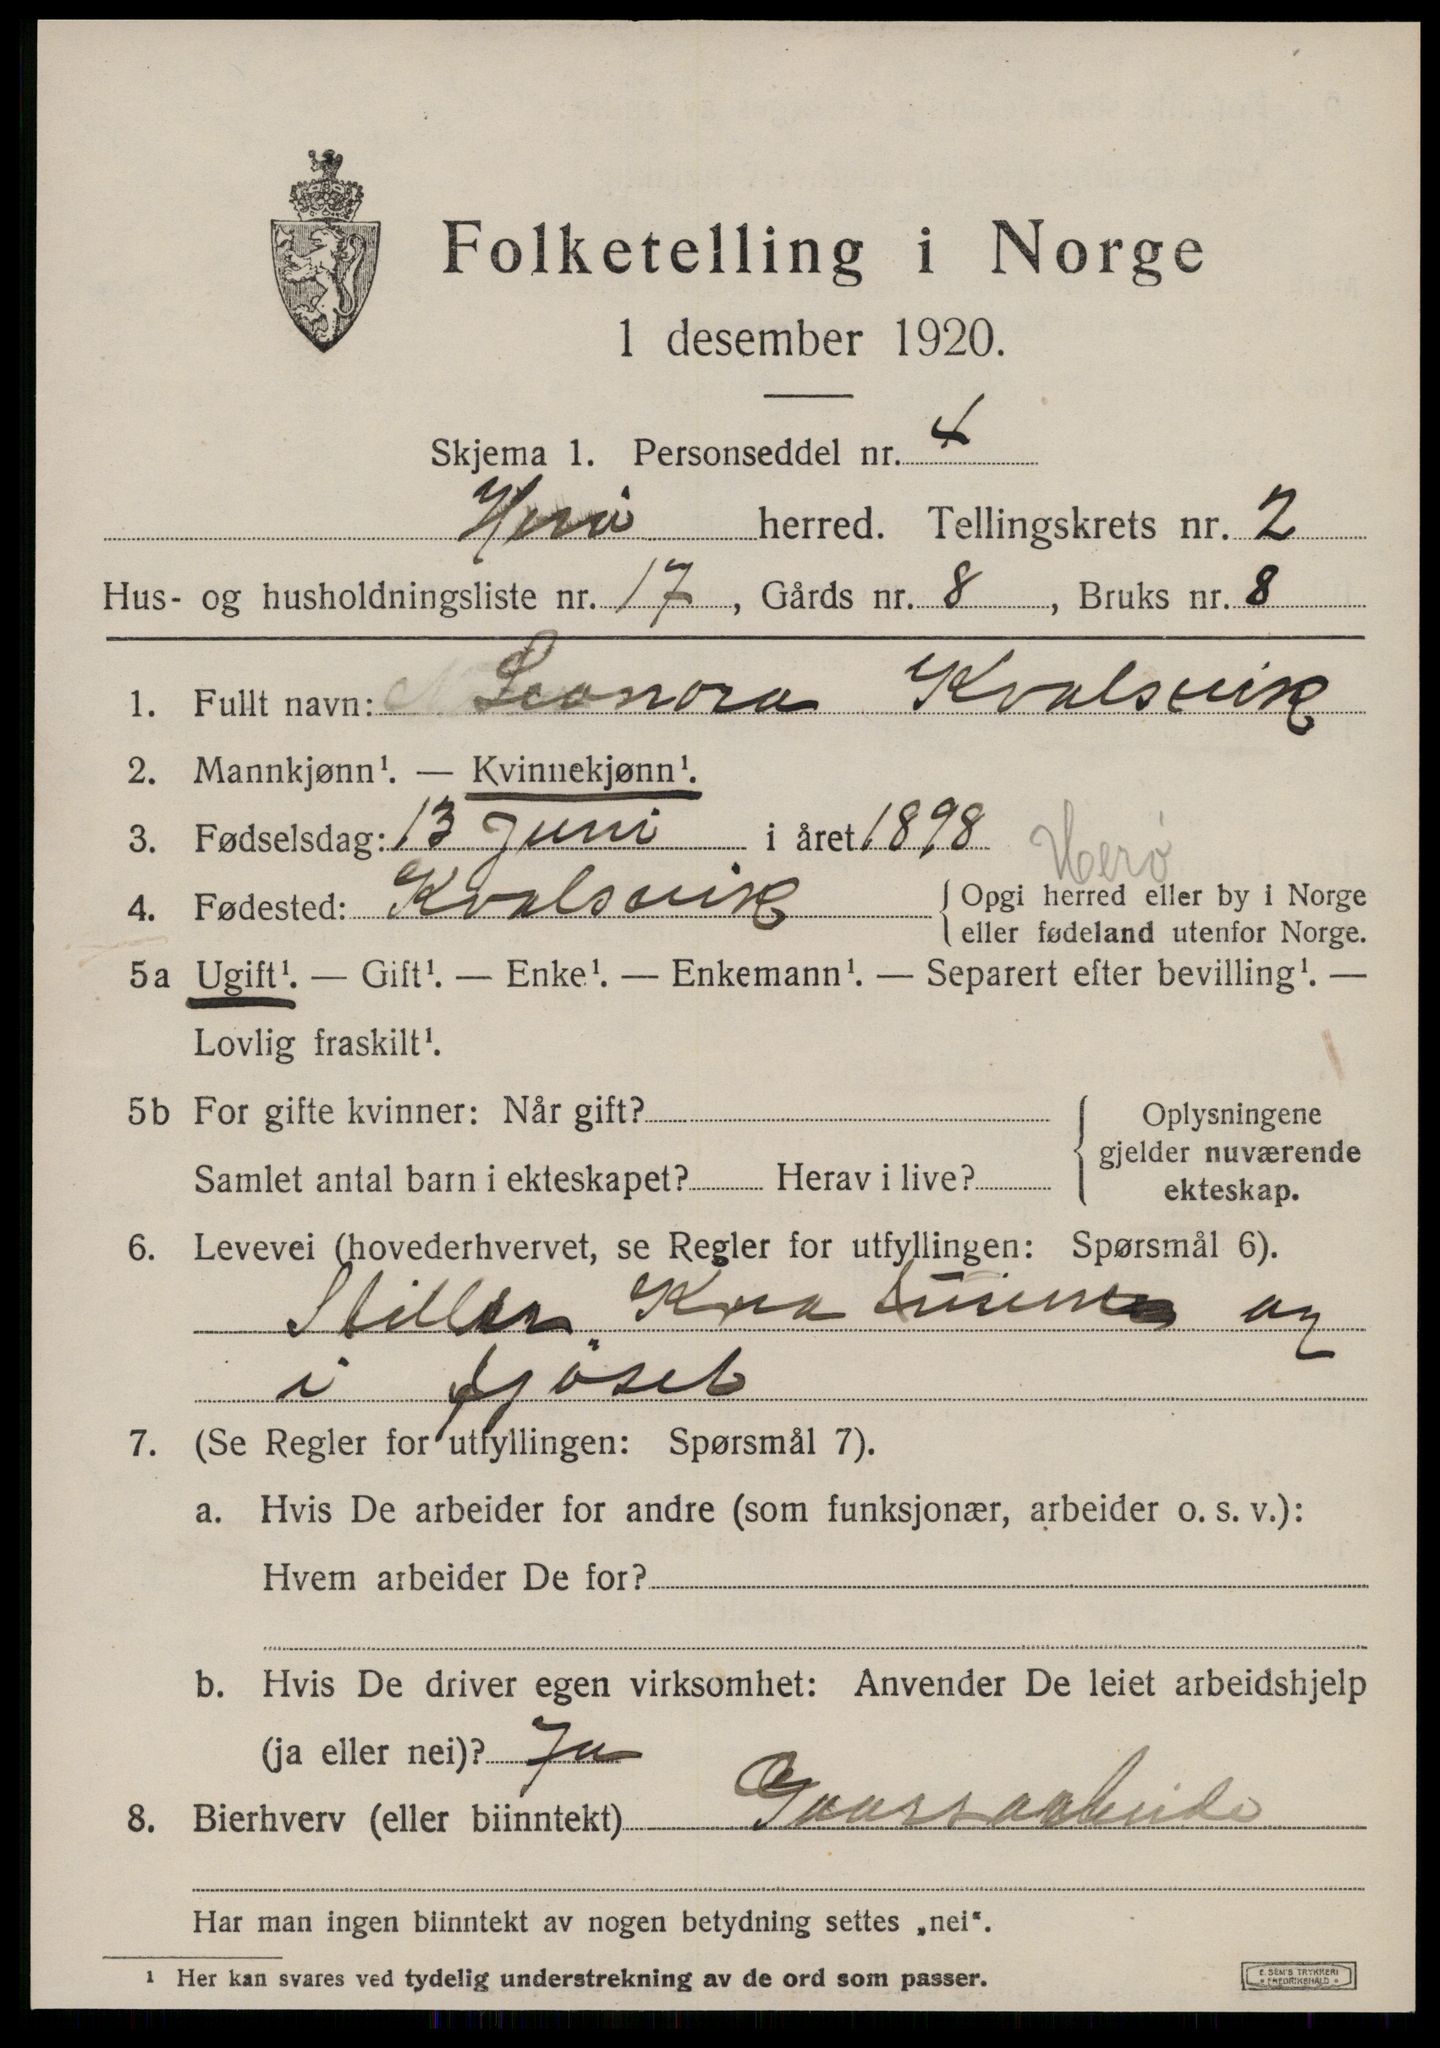 Folketelling i Norge
1 desember 1920.
Skjema 1. Personseddel nr. 4
Herö herred. Tellingskrets nr. 2
Hus- og husholdningsliste nr. 17, Gårds nr. 8, Bruks nr. 8
1. Fullt navn: Leonora Kvalsvik
2. Mannkjønn¹. — Kvinnekjønn¹.
3. Fødselsdag: 13 Juni i året 1898
Herø
4. Fødested: Kvalsvik { Opgi herred eller by i Norge
eller fødeland utenfor Norge.
5a Ugift¹. — Gift¹. — Enke¹. — Enkemann¹. — Separert efter bevilling¹. —
Lovlig fraskilt¹.
5b For gifte kvinner: Når gift? Oplysningene
gjelder nuværende
Samlet antal barn i ekteskapet? Herav i live? ekteskap.
6. Levevei (hovederhvervet, se Regler for utfyllingen: Spørsmål 6).
Steller og
i fjöset
7. (Se Regler for utfyllingen: Spørsmål 7).
a. Hvis De arbeider for andre (som funksjonær, arbeider o. s. v.):
Hvem arbeider De for?
b. Hvis De driver egen virksomhet: Anvender De leiet arbeidshjelp
(ja eller nei)? Ja
8. Bierhverv (eller biinntekt)
Har man ingen biinntekt av nogen betydning settes „nei“.
¹ Her kan svares ved tydelig understrekning av de ord som passer.
E. SEM'S TRYKKERI
FREDRIKSHALD